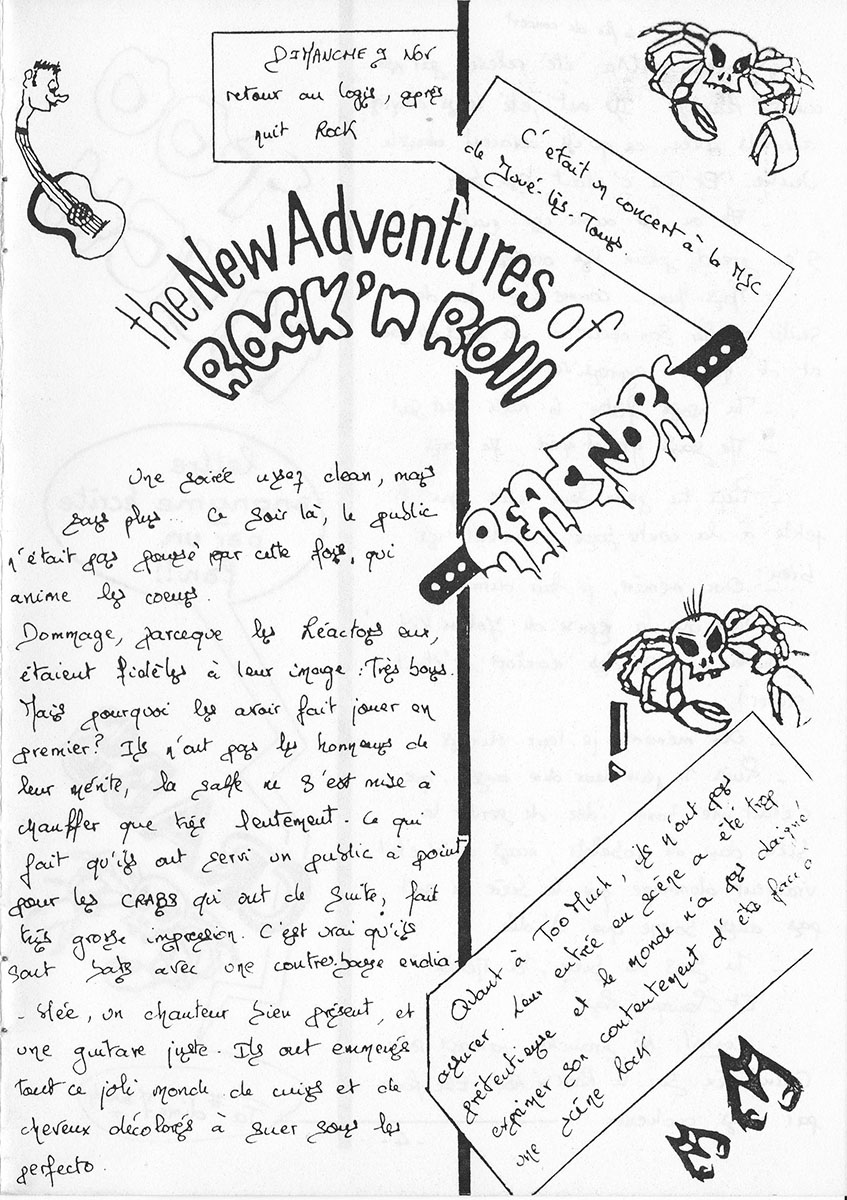 DIMANCHE 9 NOV
retour au logis, après
nuit Rock
C'était un concert à la MJC
de Joué-lès-Tours
the New Adventures of
ROCK'n ROLL
REACTORS
Une soirée assez clean, mais
sans plus... Ce soir là, le public
n'était pas poussé par cette fois, qui
anime les coeurs.
Dommage, parceque les Réactors eux,
étaient fidèles à leur image : Très bons.
Mais pourquoi les avoir fait jouer en
premier? Ils n'ont pas les honneurs de
leur mérite, la salle ne s'est mise à
chauffer que très lentement. Ce qui
fait qu'ils ont servi un public à point
pour les CRABS qui ont de suite, fait
très grosse impression. C'est vrai qu'ils
sont bats avec une contrebasse endia-
-blée, un chanteur bien présent, et
une guitare juste. Ils ont emmenés
tout ce joli monde de cuirs et de
cheveux décolorés à suer sous les
perfecto.
Quant à Too Much, ils n'ont pas
assurer. Leur entrée en scène a été trop
prétentieuse et le monde n'a pas daigné
exprimer son contentement d'être face à
une scène Rock